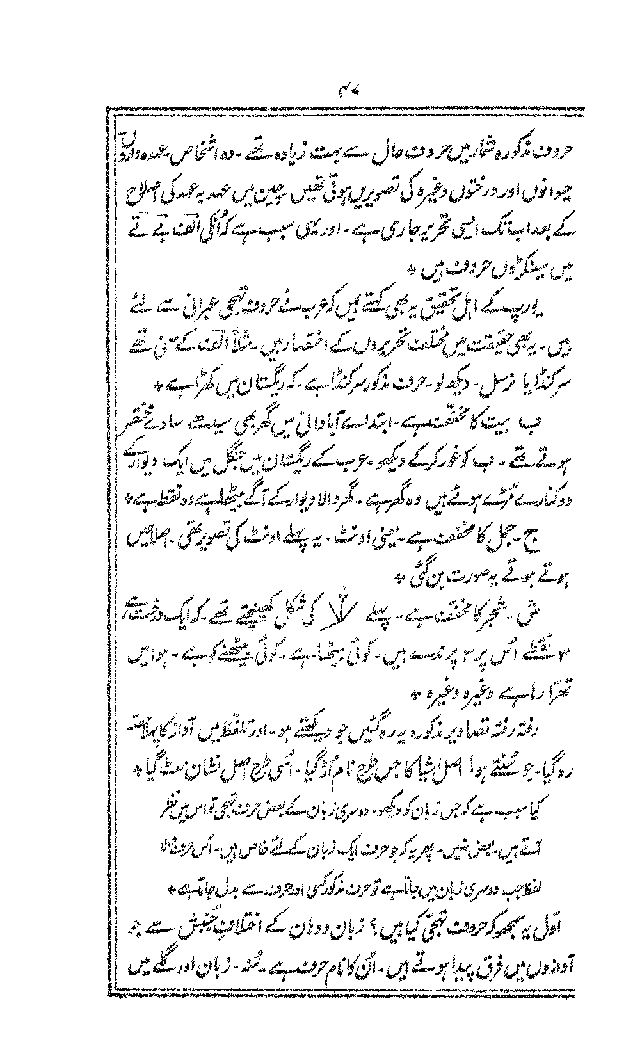 ۴۷
حروف مذکورہ شمار میں حروف حال سے بہت زیادہ تھے۔ وہ اشخاص عدد واروں
حیوانوں اور درختوں وغیرہ کی تصویریں ہوتی تھیں چین میں عہد بہ عہد کی اصلاح
کے بعد اب تک ایسی تحریر جاری ہے۔ اور یہی سبب ہے کہ اُنکی الف بے تے
میں سینکڑوں حروف ہیں *
یورپ کے اہل تحقیق یہ بھی کہتے ہیں کہ عرب نے حروف تہجی عبرانی سے لئے
ہیں۔ یہ بھی حقیقت میں مختلف تحریروں کے اختصار ہیں۔ مثلاً الف کے معنی تھے
سرکنڈا یا نرسل۔ دیکھ لو۔ حرف مذکور سرکنڈا ہے۔ کہ ریگستان میں کھڑا ہے *
ب بیت کا مخفف ہے۔ ابتداے آبادانی میں گھر بھی سیدھے سادے مختصر
ہوتے تھے۔ ب کو غور کر کے دیکھو۔ عرب کے ریگستان میں جنگل میں ایک دیوار کے
دو کنارے مُڑے ہوئے ہیں وہ گھر ہے۔ گھر والا دیوار کے آگے بیٹھا ہے وہ نقطہ ہے *
ج۔ جمل کا مخفف ہے۔ یعنی اونٹ۔ یہ پہلے اونٹ کی تصویر تھی۔ اصلاحیں
ہوتے ہوتے یہ صورت بن گئی *
ش۔ شجر کا مخفف ہے۔ پہلے کی شکل کھینچتے تھے۔ کہ ایک درخت ہے
۳ نقطے اُس پر ۳ پرندے ہیں۔ کوئی بیٹھا ہے۔ کوئی بیٹھنے کو ہے۔ ہوا میں
تھرّا رہا ہے وغیرہ وغیرہ *
رفتہ رفتہ تصاویر مذکورہ یہ رہ گئیں جو دیکھتے ہو۔ اور تلفظ میں آواز کا پہلا حصّہ
رہ گیا۔ جو سُنتے ہو۔ اصل اشیا کا جس طرح نام اُڑ گیا۔ اُسی طرح اصل نشان مٹ گیا *
کیا سبب ہے کہ جس زبان کو دیکھو۔ دوسری زبان کے بعض حروف تہجی تو اس میں نظر
آتے ہیں۔ بعض نہیں۔ پھر یہ کہ جو حروف ایک زبان کے لئے خاص ہیں۔ اُس حرف کا
لفظ جب دوسری زبان میں جاتا ہے تو حرف مذکور کسی اور حرف سے بدل جاتا ہے *
اوّل یہ سمجھو کہ حروف تہجّی کیا ہیں؟ زبان و دہان کے اختلافِ جنبش سے جو
آوازوں میں فرق پیدا ہوتے ہیں۔ اُن کا نام حروف ہے۔ مُنہ۔ زبان اور گلے میں